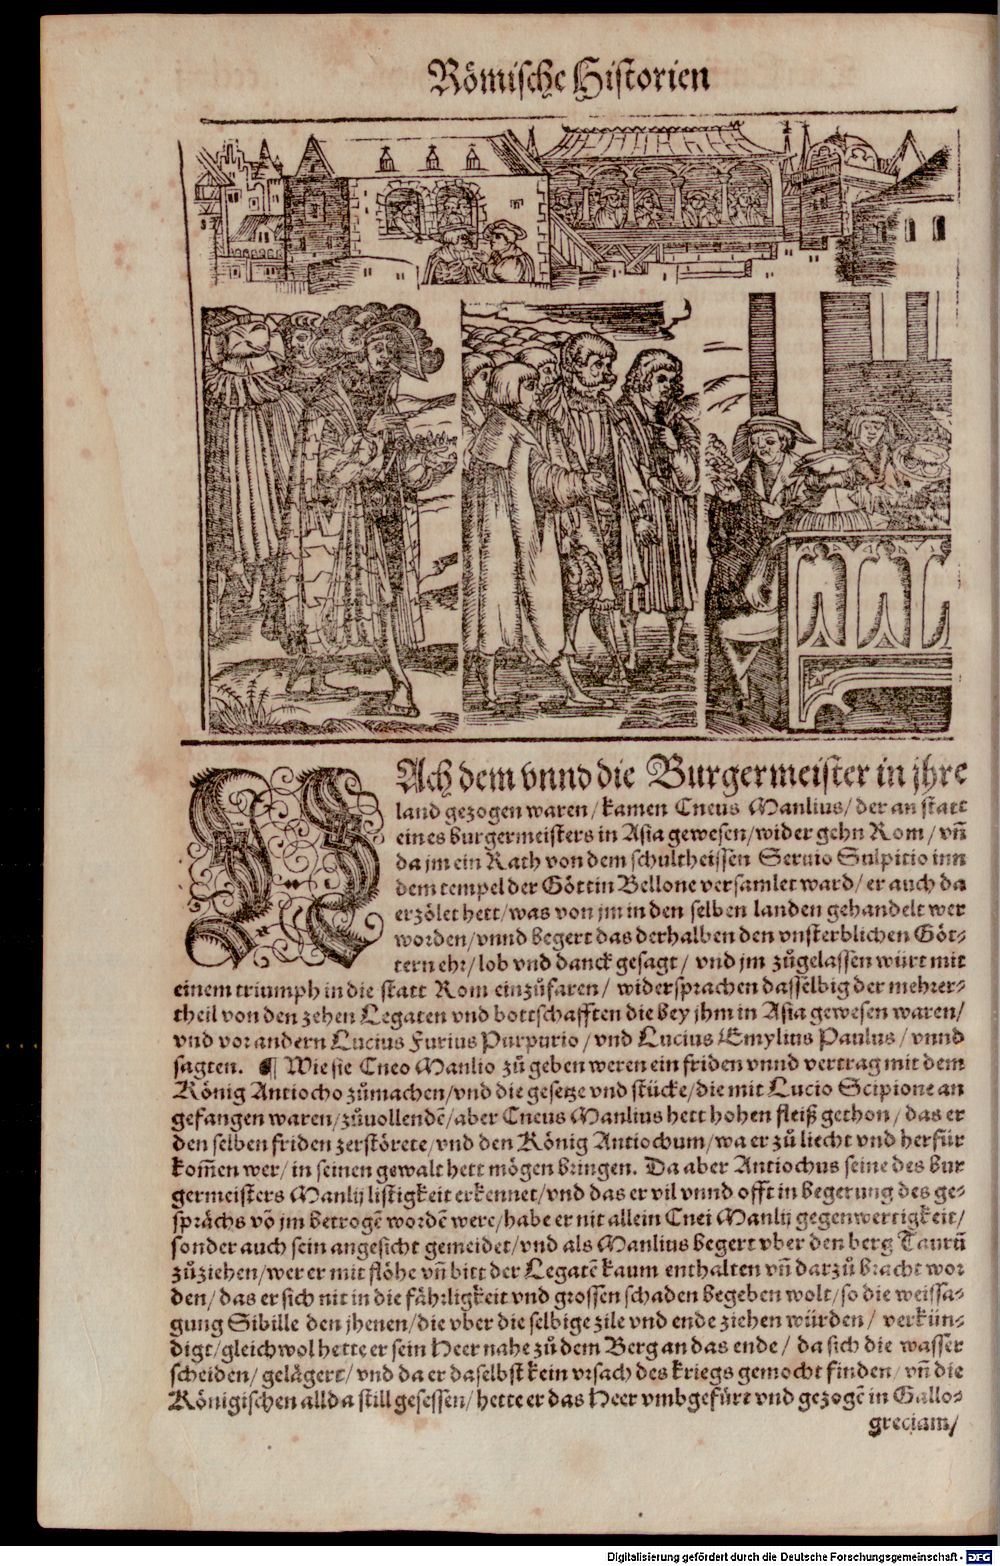 Römische Historien
NAch dem vnnd die Burgermeister in jhre
land gezogen waren / kamen Cneus Manlius / der an statt
eines burgermeisters in Asia gewesen / wider gehn Rom / vñ
da jm ein Rath von dem schultheissen Seruio Sulpitio inn
dem tempel der Göttin Bellone versamlet ward / er auch da
erzölet hett / was von jm in den selben landen gehandelt wer
worden / vnnd begert das derhalben den vnsterblichen Göt-
tern ehr / lob vnd danck gesagt / vnd jm zůgelassen würt mit
einem triumph in die statt Rom einzůfaren / widersprachen dasselbig der mehrer-
theil von den zehen Legaten vnd bottschafften die bey jhm in Asia gewesen waren /
vnd vor andern Lucius Furius Purpurio / vnd Lucius Emylius Paulus / vnnd
sagten. ¶ Wie sie Cneo Manlio zů geben weren ein friden vnnd vertrag mit dem
König Antiocho zůmachen / vnd die gesetze vnd stücke / die mit Lucio Scipione an
gefangen waren / zůuollendẽ / aber Cneus Manlius hett hohen fleiß gethon / das er
den selben friden zerstörete / vnd den König Antiochum / wa er zů liecht vnd herfür
kom̃en wer / in seinen gewalt hett mögen bringen. Da aber Antiochus seine des bur
germeisters Manlij listigkeit erkennet / vnd das er vil vnnd offt in begerung des ge-
sprächs võ jm betrogẽ wordẽ were / habe er nit allein Cnei Manlij gegenwertigkeit /
sonder auch sein angesicht gemeidet / vnd als Manlius begert vber den berg Taurũ
zůziehen / wer er mit flöhe vñ bitt der Legatẽ kaum enthalten vñ darzů bracht wor
den / das er sich nit in die fährligkeit vnd grossen schaden begeben wolt / so die weissa-
gung Sibille den jhenen / die vber die selbige zile vnd ende ziehen würden / verkün-
digt / gleichwol hette er sein Heer nahe zů dem Berg an das ende / da sich die wasser
scheiden / gelägert / vnd da er daselbst kein vrsach des kriegs gemocht finden / vñ die
Königischen allda still gesessen / hette er das Heer vmbgefürt vnd gezogẽ in Gallo-
greciam /
Digitalisierung gefördert durch die Deutsche Forschungsgemeinschaft - DFG